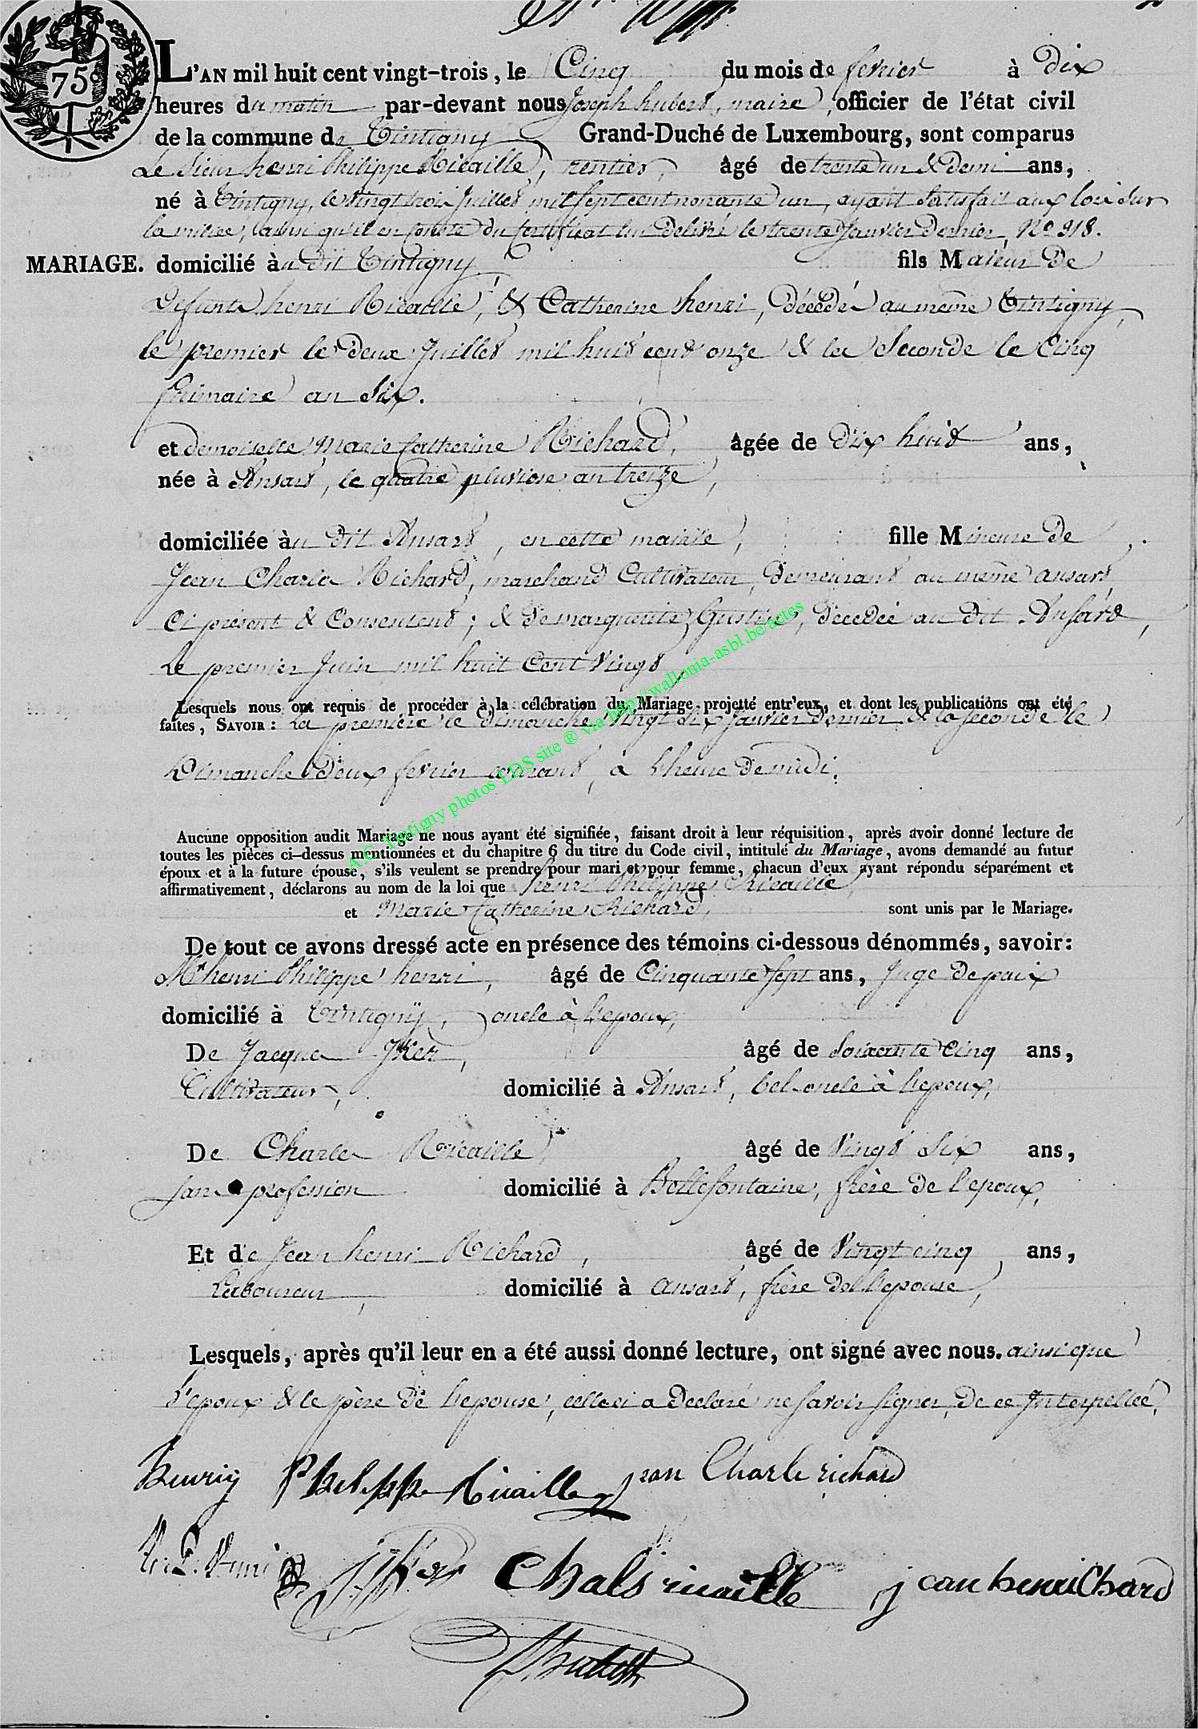 75
L'AN mil huit cent vingt-trois, le Cinq du mois de fevrier à Dix
heures du matin par-devant nous Joseph hubert, maire, officier de l'état civil
de la commune de Tintigny Grand-Duché de Luxembourg, sont comparus
Le Sieur henri Philippe Ricaille, rentier, âgé de trente un & demi ans,
né à Tintigny, le vingt trois Juillet mil sept cent nonante un, ayant satisfait aux lois sur
la milice, ainsi qu'il en conste du Certificat lui délivré le trente Janvier dernier, N° 918.
MARIAGE. domicilié à u dit Tintigny fils Majeur de
Defunts henri Ricaille, & Catherine henri, décédés au même Tintigny,
le premier le deux Juillet mil huit cent onze & la Seconde le Cinq
frimaire an Six.
et demoiselle Marie Catherine Richard, âgée de Dix huit ans,
née à Ansart, le quatre pluviose an treize,
domiciliée à u dit Ansart, en cette mairie, fille Mineure de
Jean Charle Richard, marchand Cultivateur, demeurant au même ansart
Ci présent & Consentent; & de marguerite Gustin, décédée au dit Ansart,
Le premier Juin mil huit Cent Vingt
Lesquels nous ont requis de procéder à la célébration du Mariage projetté entr'eux, et dont les publications ont été
faites, SAVOIR: La première le dimanche vingt six Janvier dernier & la seconde le
Dimanche deux fevrier courant, à l'heure de midi.
Aucune opposition audit Mariage ne nous ayant été signifiée, faisant droit à leur réquisition, après avoir donné lecture de
toutes les pièces ci-dessus mentionnées et du chapitre 6 du titre du Code civil, intitulé du Mariage, avons demandé au futur
époux et à la future épouse, s'ils veulent se prendre pour mari et pour femme, chacun d'eux ayant répondu séparément et
affirmativement, déclarons au nom de la loi que henri Philippe Ricaille,
et Marie Catherine Richard, sont unis par le Mariage.
De tout ce avons dressé acte en présence des témoins ci-dessous dénommés, savoir:
Mr henri Philippe henri, âgé de Cinquante sept ans, Juge de paix
domicilié à Tintigny, oncle à l'epoux,
De Jacque âgé de Soixante Cinq ans,
Cultivateur, domicilié à Ansart, bel-oncle à l'epoux,
De Charle Ricaille âgé de Vingt Six ans,
sans profession domicilié à Bellefontaine, frère de l'epoux,
Et de Jean henri Richard, âgé de Vingt cinq ans,
Laboureur, domicilié à ansart, frère de l'epouse,
Lesquels, après qu'il leur en a été aussi donné lecture, ont signé avec nous. ainsi que
l'epoux & le père de l'epouse, celle ci a Declaré ne savoir signer, de ce Interpellée.
henrig Philippe Ricaille jean Charle richard
h. P. henri Chals ricaille jean henri Chard
J hubert
A.C. Tintigny photos LDS site ® via http://wallonia-asbl.be/actes